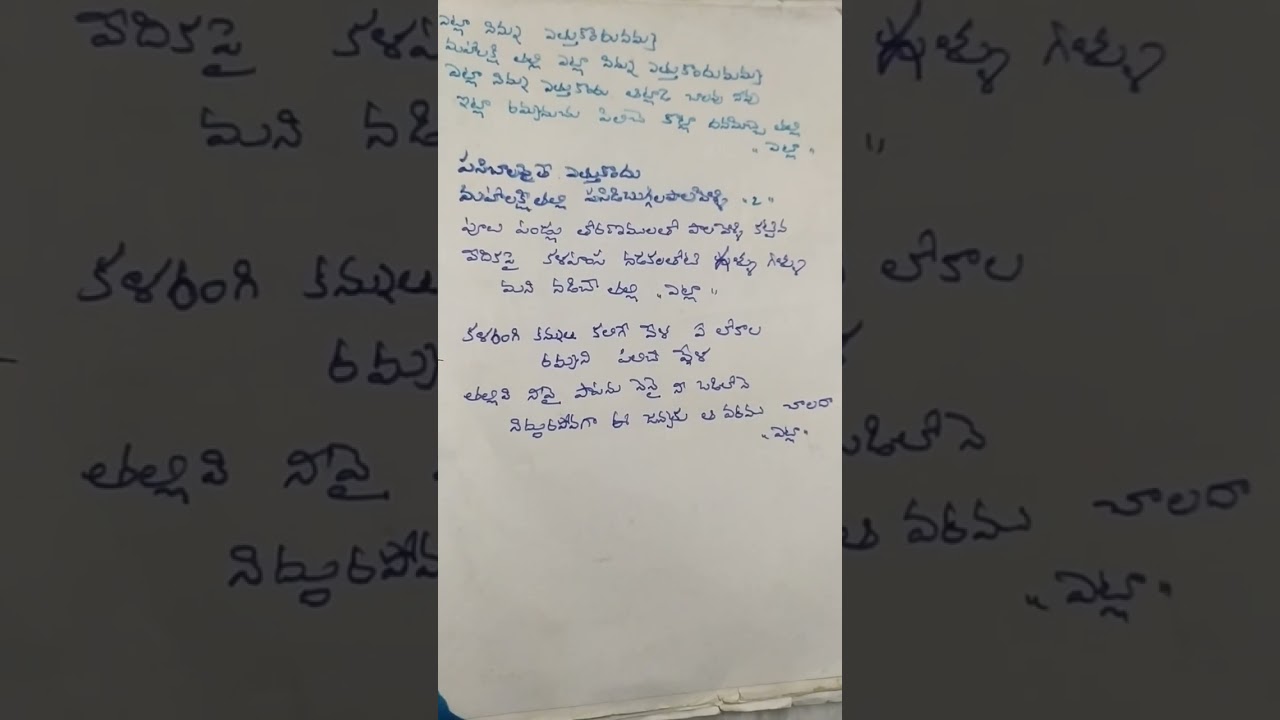 ఎట్లా నిన్ను ఎత్తుకొందునమ్మ
మహాలక్ష్మి తల్లి ఎట్లా నిన్ను ఎత్తుకొందునమ్మ
ఎట్లా నిన్ను ఎత్తుకొందు ఆట్లాడే బాలవు నీవు
ఇట్లా రమ్మనుచు పిలిచే కోట్లా ధనమిచ్చె తల్లి
"ఎట్లా"
పసిబాలవైతె ఎత్తుకొందు
మహాలక్ష్మి తల్లి పసిడిబుగ్గలపాలవెల్లి "2"
పూలు పండ్లు తోరణములతో పాలవెల్లి కట్టిన
వేదికపై కళహంస నడకలతోటి ఘల్లు గల్లు
మని నడిచే తల్లి "ఎట్లా"
కళరంగి కన్నులు కలిగే వేళ ఏ లోకాల
రమ్మని పిలిచె వేళ
తల్లివి నీవై పాపను నేనై నీ ఒడిలోనె
నిద్దురపోవగా ఈ జన్మకు ఆ వరము చాలదా
"ఎట్లా"